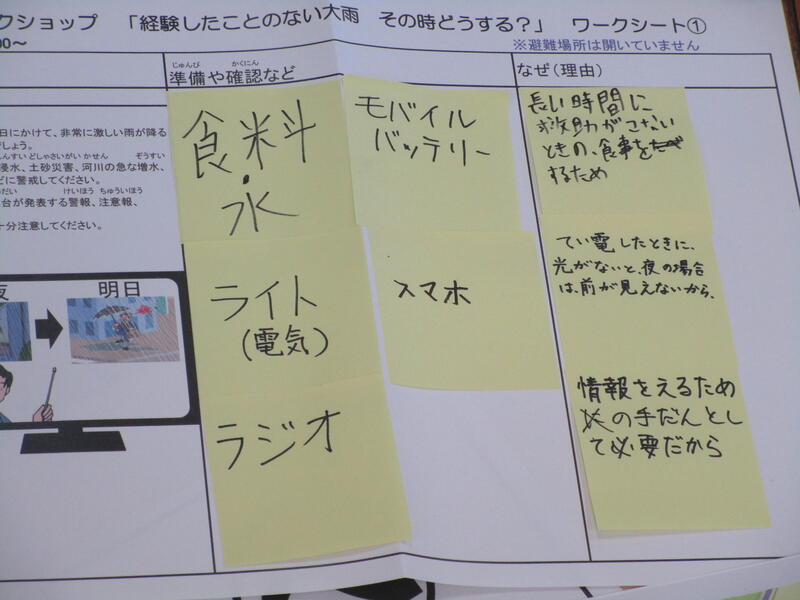 クショップ 「経験したことのない大雨 その時どうする？」 ワークシート①
00～
※避難場所は開いていません
じゅんび かくにん
準備や確認など
なぜ（理由）
日にかけて、非常に激しい雨が降る
でしょう。
しんすい どしゃさいがい かせん ぞうすい
浸水、土砂災害、河川の急な増水、
どに警戒してください。
だい けいほう ちゅういほう
台が発表する警報、注意報、
十分注意してください。
夜
明日
食料
・
水
モバイル
バッテリー
長い時間に
救助がこない
ときの、食事を
するため
ライト
(電気)
スマホ
てい電したときに、
光がないと、夜の場合
は、前が見えないから、
ラジオ
情報をえるため
の手だんとし
て必要だから